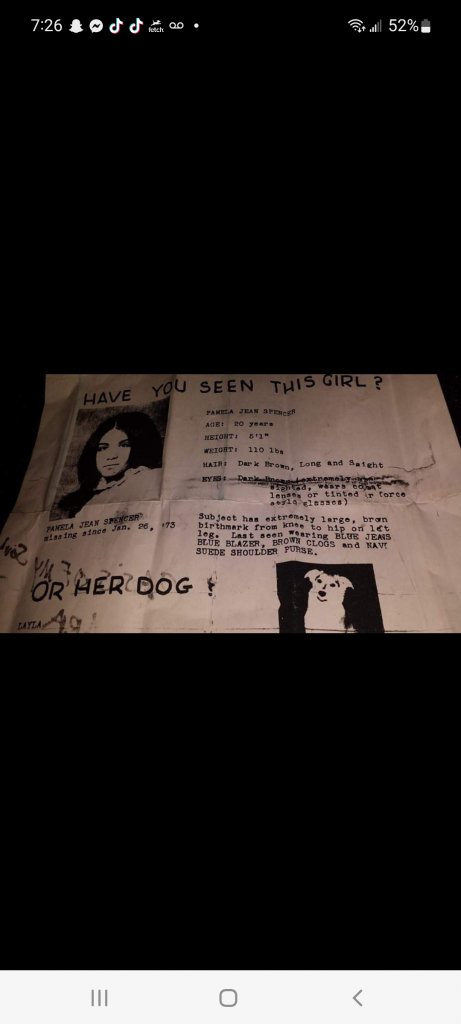 7:26
fetch
52%
HAVE YOU SEEN THIS GIRL?
PAMELA JEAN SPENCER
AGE: 20 years
HEIGHT: 5'1"
WEIGHT: 110 lbs
HAIR: Dark Brown, Long and Saight
EYES: Dark Brown (extremely
sighted, wears
lenses or tinted ir force
style glasses)
PAMELA JEAN SPENCER
missing since Jan. 26, '73
Subject has extremely large, brown
birthmark from knee to hip on left
leg. Last seen wearing BLUE JEANS
BLUE BLAZER, BROWN CLOGS and NAVY
SUEDE SHOULDER PURSE.
OR HER DOG ?
LAYLA